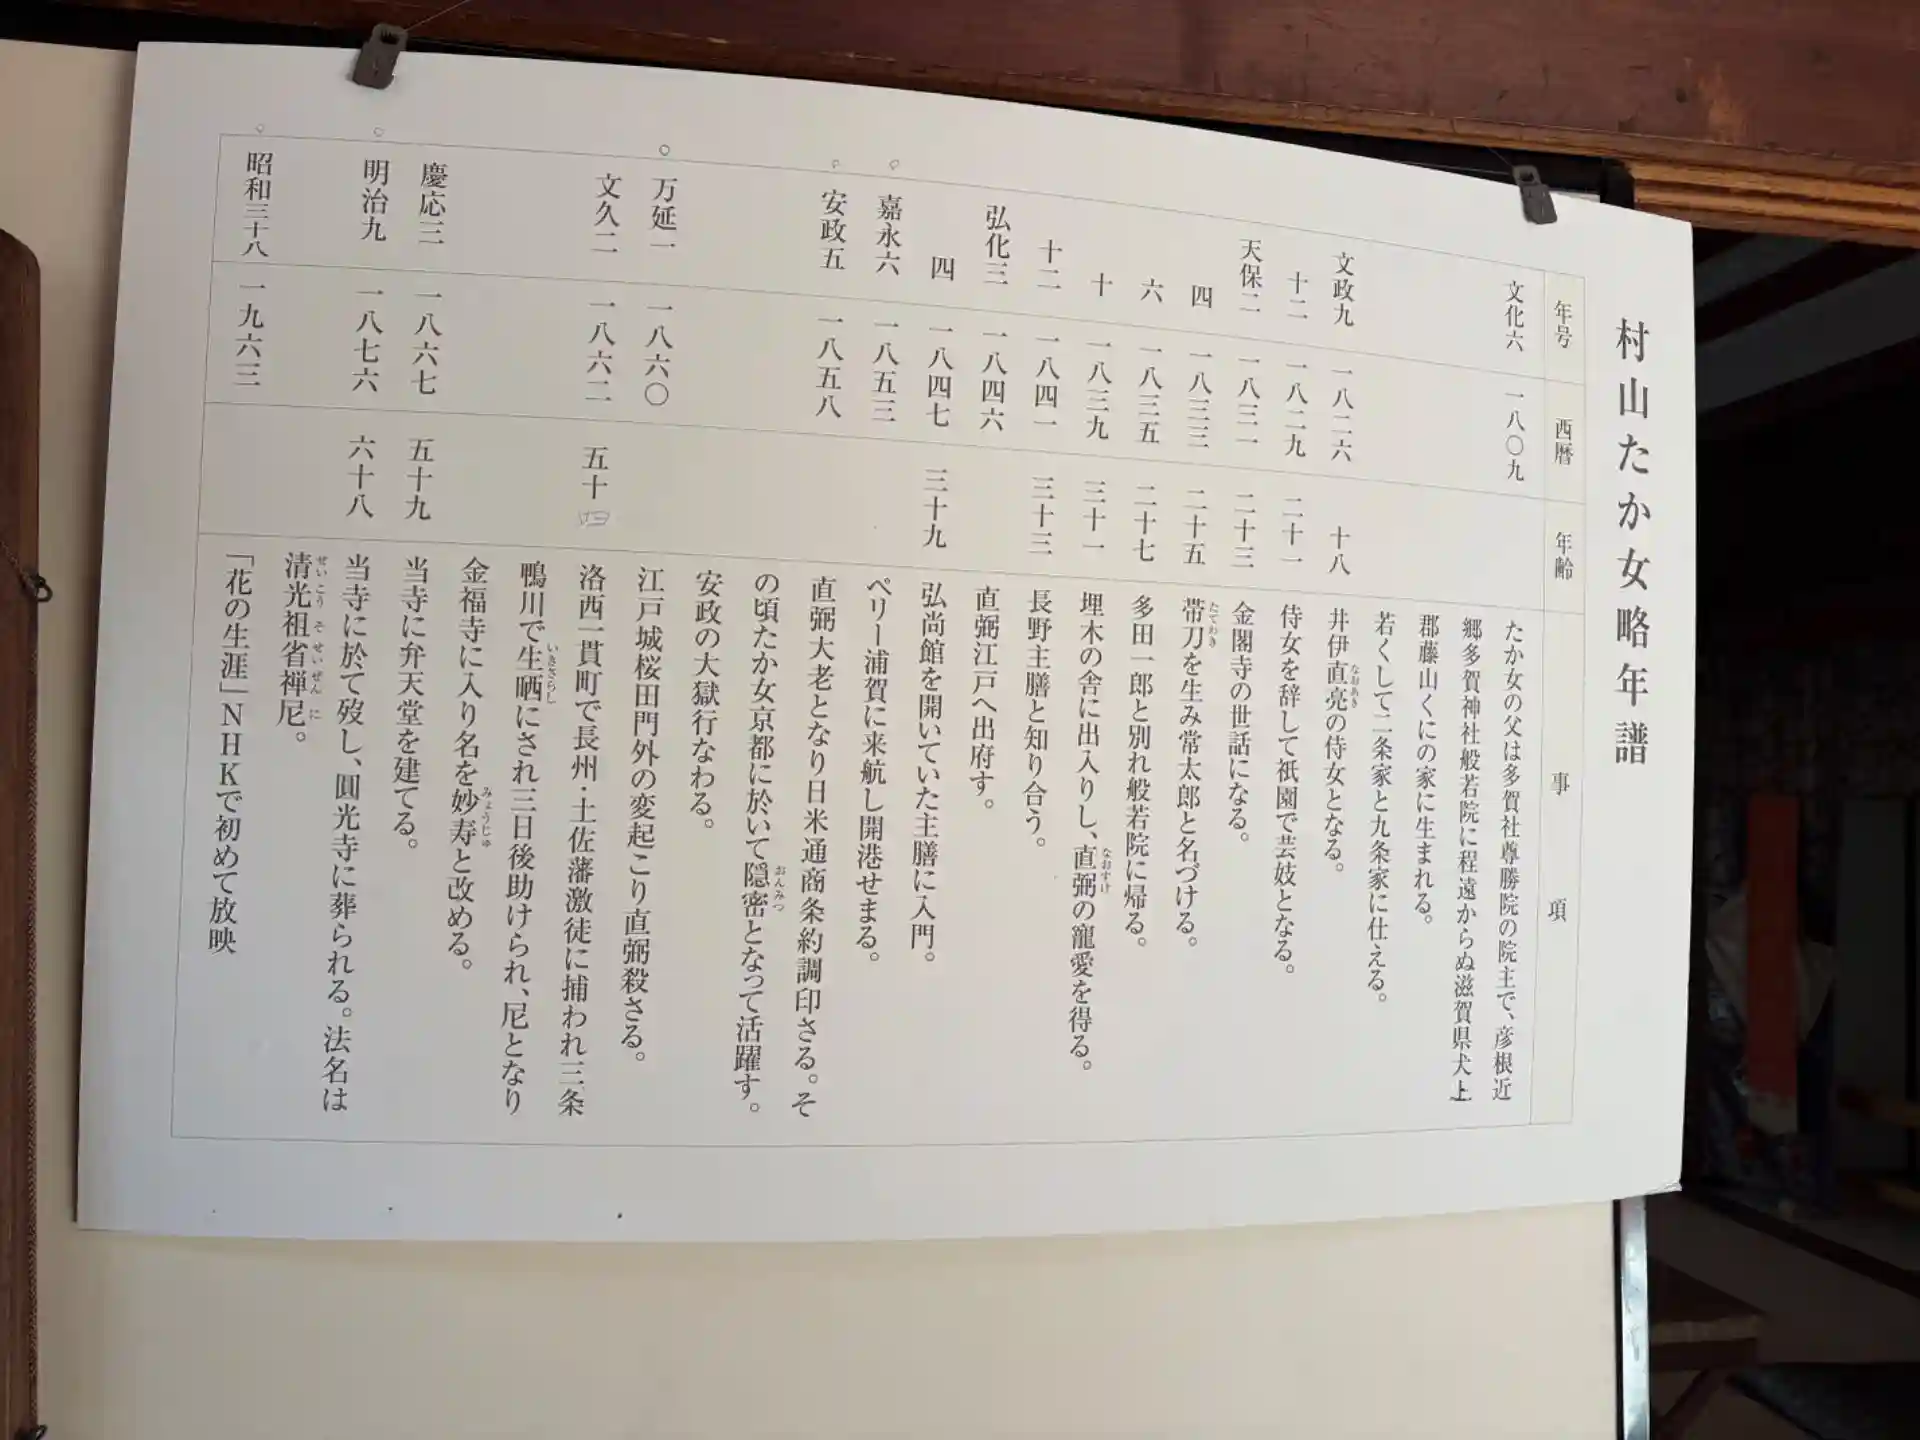 村山たか女略年譜
年号 西暦 年齢 事項
文化六 一八〇九 たか女の父は多賀社尊勝院の院主で、彦根近
郷多賀神社般若院に程遠からぬ滋賀県犬上
郡藤山くにの家に生まれる。
若くして二条家と九条家に仕える。
文政九 一八二六 十八 井伊直亮の侍女となる。
なおあき
十二 一八二九 二十一 侍女を辞して祇園で芸妓となる。
天保二 一八三一 二十三 金閣寺の世話になる。
四 一八三三 二十五 帯刀を生み常太郎と名づける。
たてわき
六 一八三五 二十七 多田一郎と別れ般若院に帰る。
十 一八三九 三十一 埋木の舎に出入りし、直弼の寵愛を得る。
なおすけ
十二 一八四一 三十三 長野主膳と知り合う。
弘化三 一八四六 直弼江戸へ出府す。
四 一八四七 三十九 弘尚館を開いていた主膳に入門。
○ 嘉永六 一八五三 ペリー浦賀に来航し開港せまる。
○ 安政五 一八五八 直弼大老となり日米通商条約調印さる。そ
の頃たか女京都に於いて隠密となって活躍す。
おんみつ
安政の大獄行なわる。
○ 万延一 一八六〇 江戸城桜田門外の変起こり直弼殺さる。
文久二 一八六二 五十四 洛西一貫町で長州・土佐藩激徒に捕われ三条
鴨川で生晒にされ三日後助けられ、尼となり
いきさらし
金福寺に入り名を妙寿と改める。
みょうじゅ
慶応三 一八六七 五十九 当寺に弁天堂を建てる。
○ 明治九 一八七六 六十八 当寺に於て歿し、圓光寺に葬られる。法名は
清光祖省禅尼。
せいこうそせいぜんに
○ 昭和三十八 一九六三 「花の生涯」NHKで初めて放映